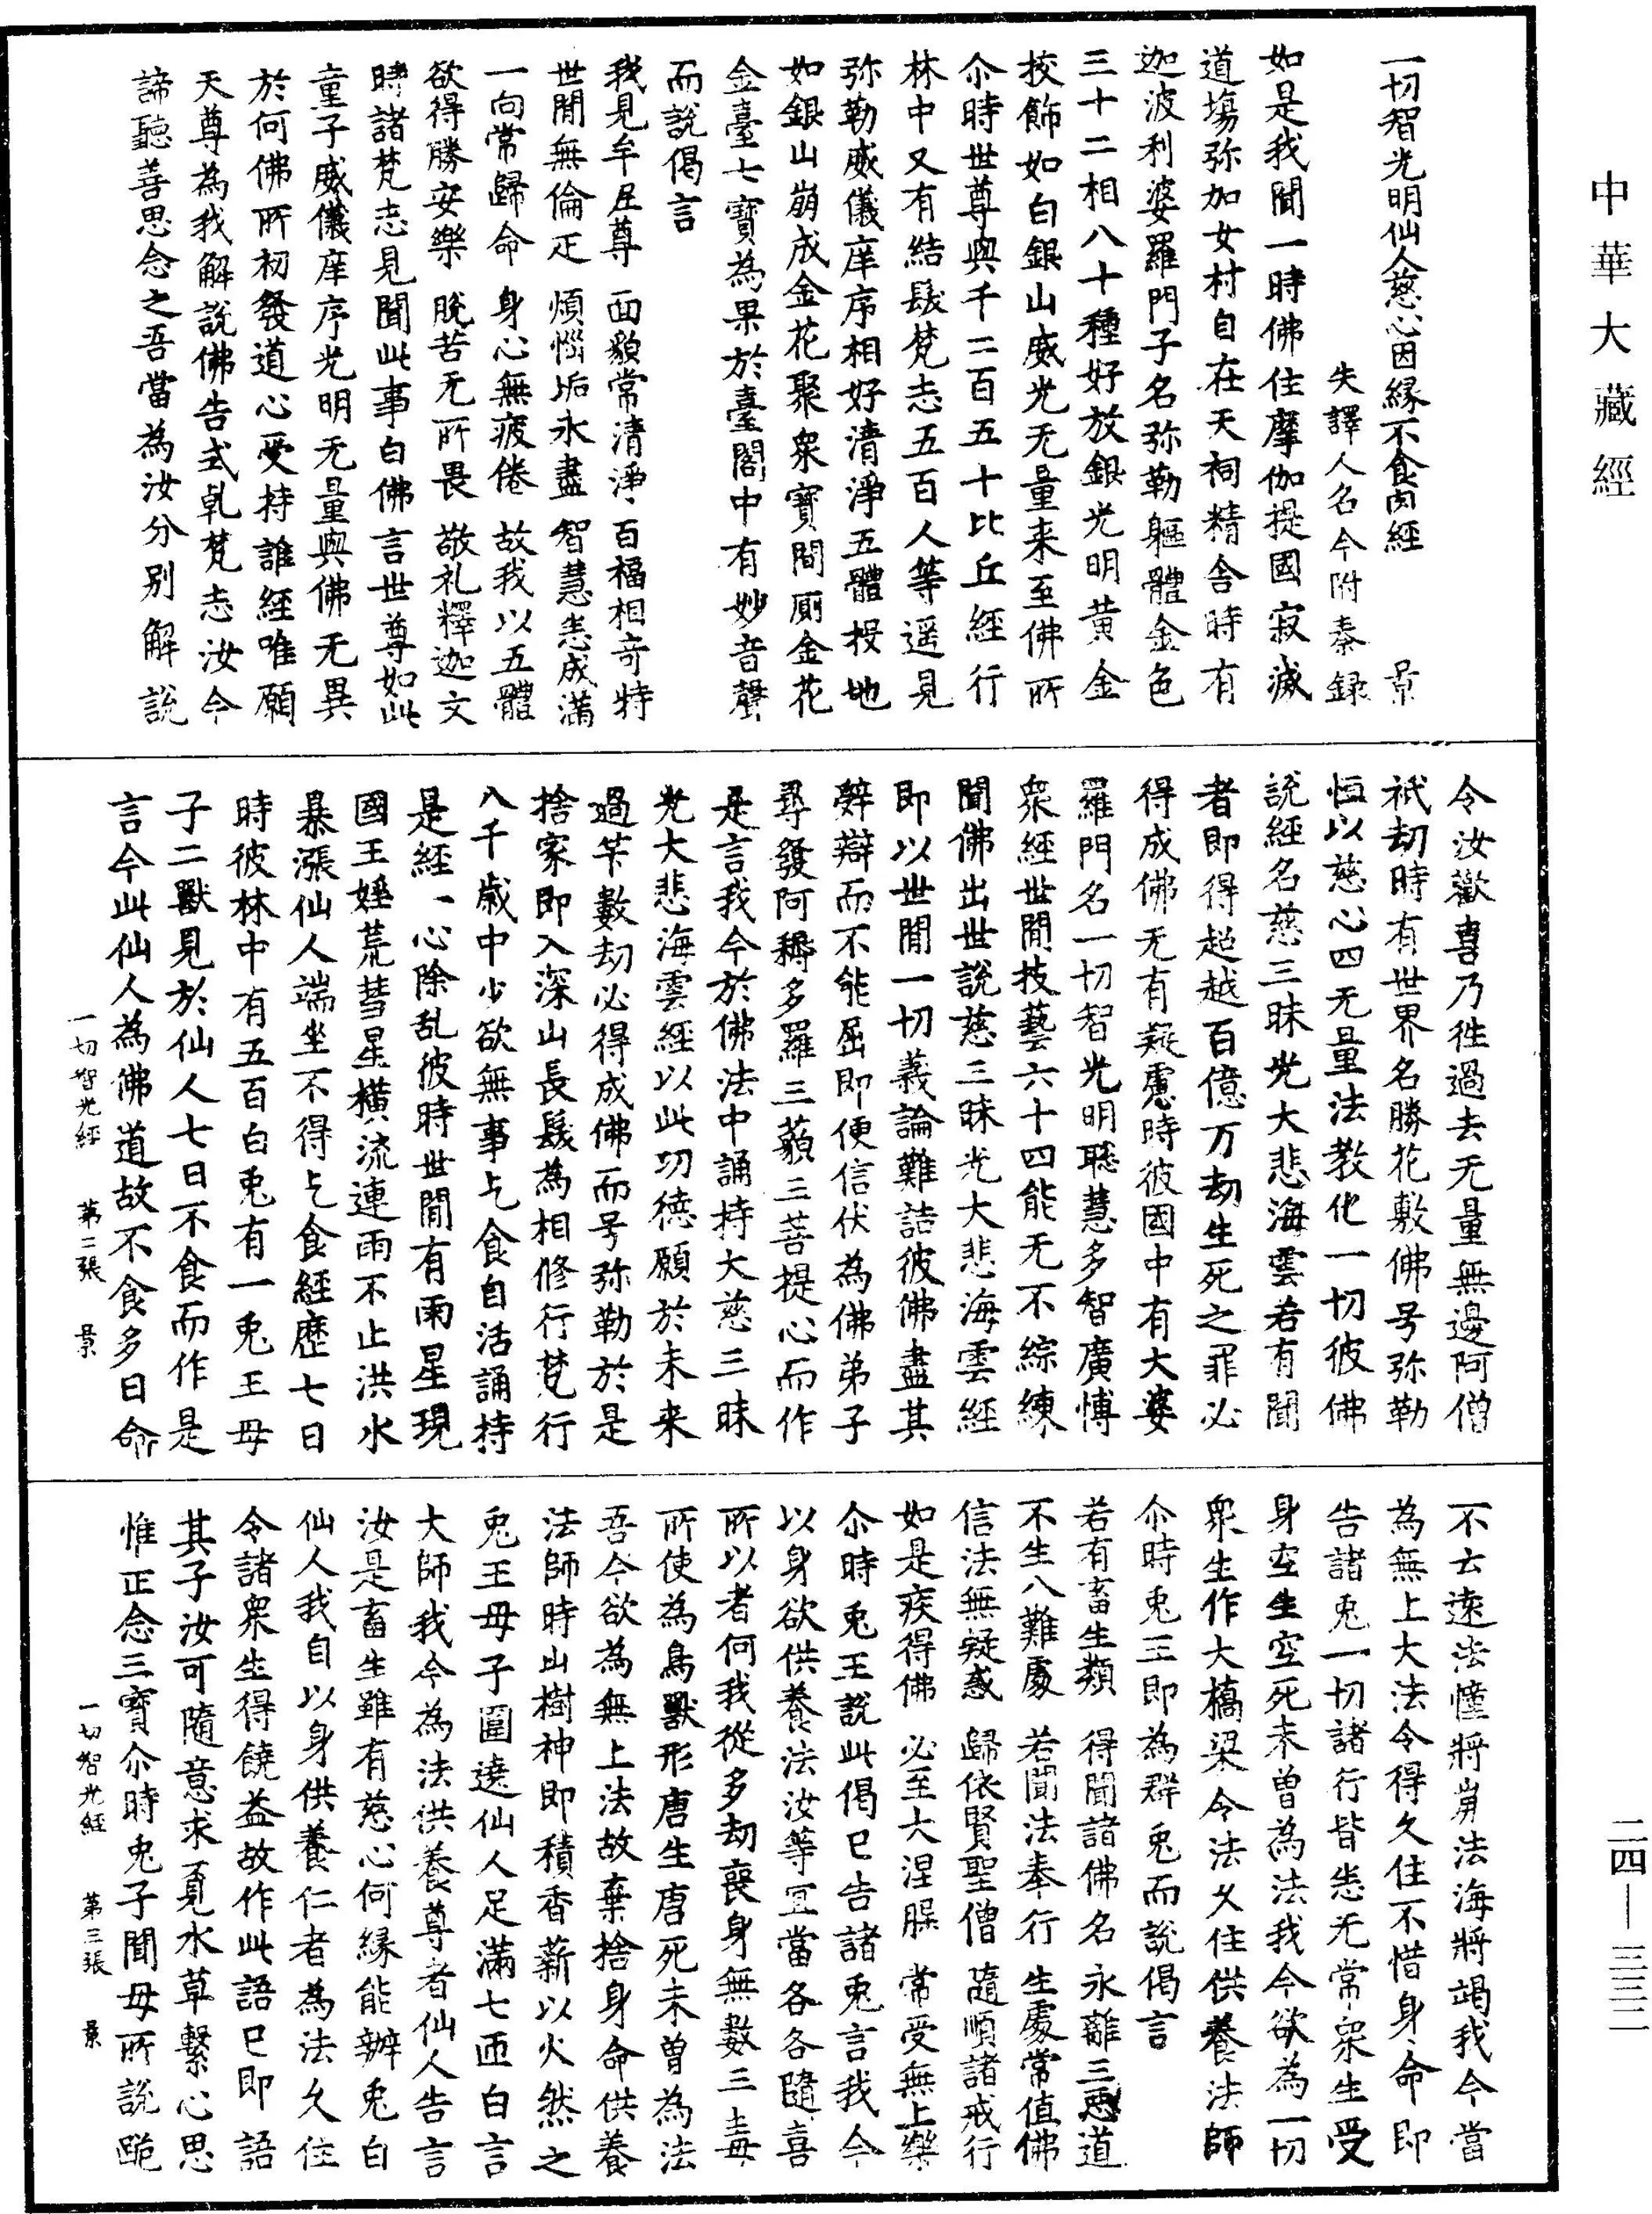 中華大藏經
一切智光明仙人慈心因緣不食肉經　景
失譯人名今附秦録
如是我聞一時佛住摩伽提國寂滅
道塲弥加女村自在天祠精舎時有
迦波利婆羅門子名弥勒軀體金色
三十二相八十種好放銀光明黄金
挍飾如白銀山威光无量来至佛所
尒時世尊與千二百五十比丘經行
林中又有結髮梵志五百人等遥見
弥勒威儀庠序相好清淨五體投地
如銀山崩成金花聚衆寳間廁金花
金臺七寳為果於臺閣中有妙音聲
而說偈言
我見牟尼尊　面貌常清淨　百福相奇特
世間無倫疋　煩惱垢永盡　智慧悉成滿
一向常歸命　身心無疲倦　故我以五體
欲得勝安樂　脫苦无所畏　敬礼釋迦文
時諸梵志見聞此事白佛言世尊如此
童子威儀庠序光明无量與佛无異
於何佛所初發道心受持誰經唯願
天尊為我解說佛告式乹梵志汝今
諦聽善思念之吾當為汝分别解說
令汝歡喜乃徃過去无量無邊阿僧
祇劫時有世界名勝花敷佛号弥勒
恒以慈心四无量法教化一切彼佛
說經名慈三昧光大悲海雲若有聞
者即得超越百億万劫生死之罪必
得成佛无有疑慮時彼國中有大婆
羅門名一切智光明聦慧多智廣愽
衆經世間技藝六十四能无不綜練
聞佛出世說慈三昧光大悲海雲經
即以世間一切義論難詰彼佛盡其
辭辯而不能屈即便信伏為佛弟子
尋發阿耨多羅三藐三菩提心而作
是言我今於佛法中誦持大慈三昧
光大悲海雲經以此功德願於未来
過筭數劫必得成佛而号弥勒於是
捨家即入深山長髮為相修行梵行
八千歲中少欲無事乞食自活誦持
是經一心除乱彼時世間有兩星現
國王婬荒彗星橫流連雨不止洪水
暴漲仙人端坐不得乞食經歷七日
時彼林中有五百白兎有一兎王母
子二獸見於仙人七日不食而作是
言今此仙人為佛道故不食多日命
一切智光經　第二張　景
不云遠法幢將崩法海將竭我今當
為無上大法令得久住不惜身命即
告諸兎一切諸行皆悉无常衆生受
身空生空死未曽為法我今欲為一切
衆生作大橋梁令法久住供養法師
尒時兎王即為群兎而說偈言
若有畜生類　得聞諸佛名　永離三惡道
不生八難處　若聞法奉行　生處常值佛
信法無疑惑　歸依賢聖僧　隨順諸戒行
如是疾得佛　必至大涅槃　常受無上樂
尒時兎王說此偈已告諸兎言我今
以身欲供養法汝等宜當各各隨喜
所以者何我從多劫喪身無數三毒
所使為鳥獸形唐生唐死未曽為法
吾今欲為無上法故棄捨身命供養
法師時山樹神即積香薪以火然之
兎王母子圍遶仙人足滿七匝白言
大師我今為法供養尊者仙人告言
汝是畜生雖有慈心何緣能辦兎白
仙人我自以身供養仁者為法久住
令諸衆生得饒益故作此語已即語
其子汝可隨意求覓水草繫心思
惟正念三寳尒時兎子聞母所說跪
一切智光經　第三張　景
二四—三三二